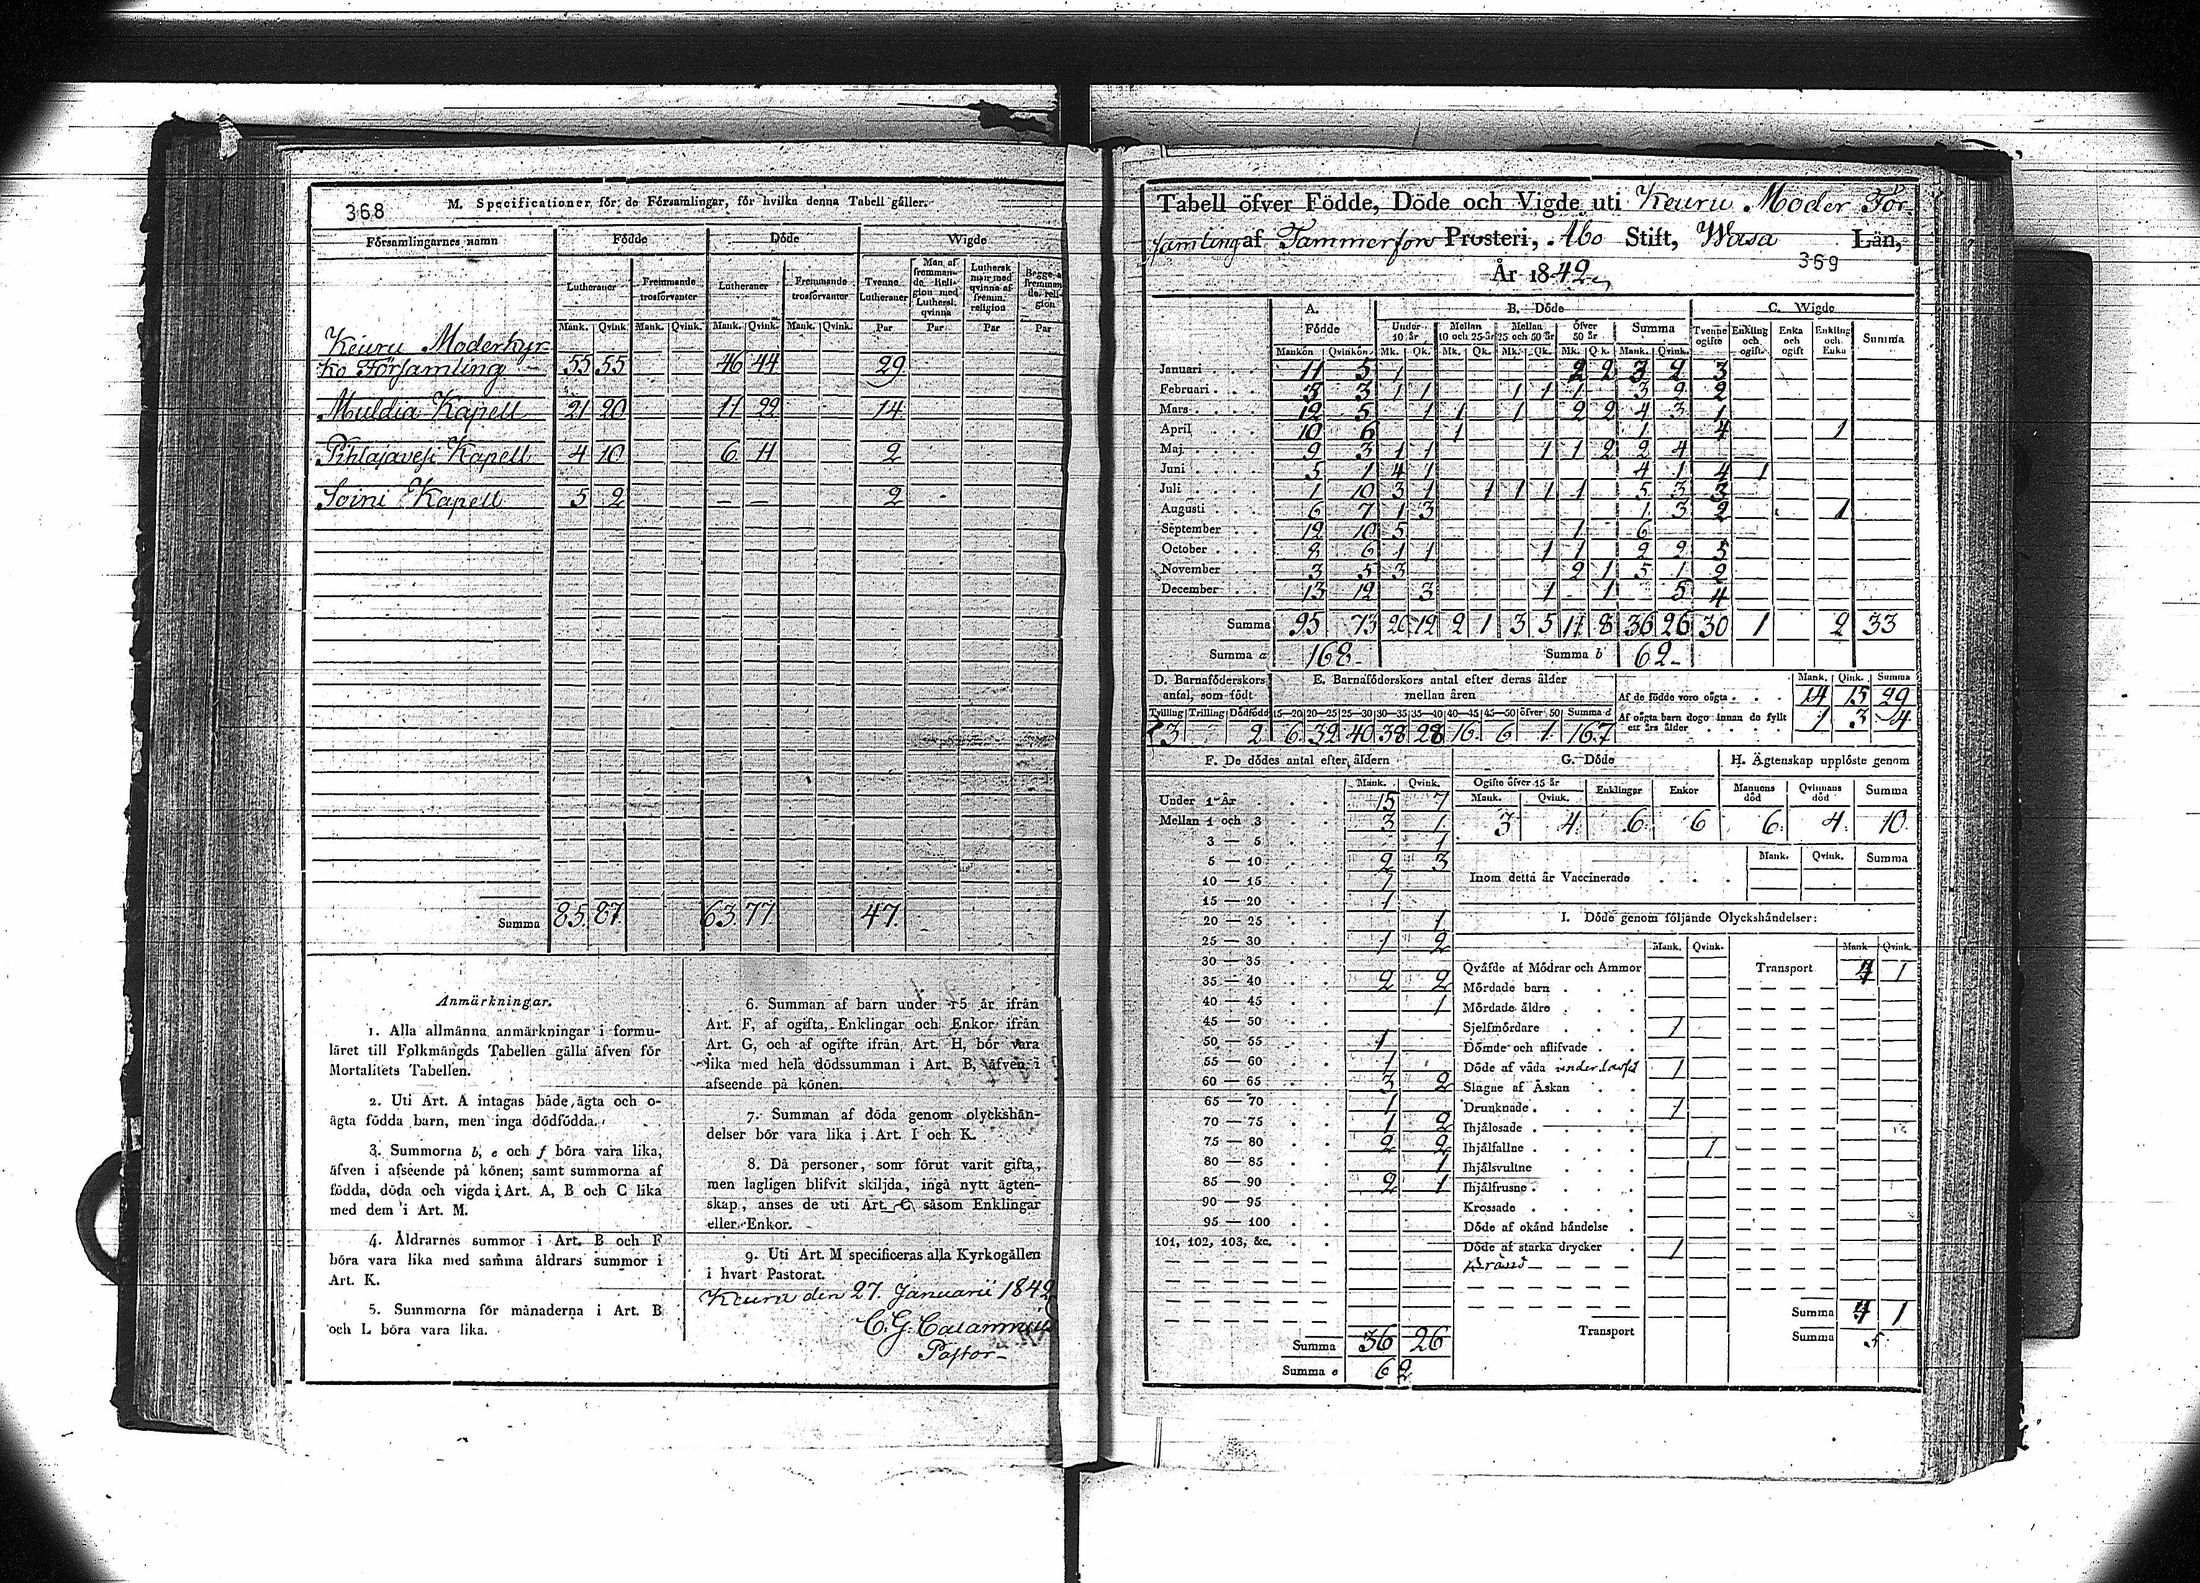 368
M. Specificationer för de Församlingar, för hvilka denna Tabell gäller.
Församlingarnes namn Födde Döde Wigde
Lutheraner Fremmande trosförvanter Lutheraner Fremmande trosförvanter Tvenne Lutheraner Man af fremmande Religion med Luthersk qvinna Luthersk man med qvinna af fremm. religion Begge af fremmande religion
Mank. Qvink. Mank. Qvink. Mank. Qvink. Mank. Qvink. Par Par Par Par
Keuru Moderkyr-
ko Församling 55 55 46 44 29
Muldia Kapell 21 20 11 22 14
Pihlajavesi Kapell 4 10 6 11 2
Soini Kapell 5 2 — — 2
Summa 85. 87. 63. 77 47.
Anmärkningar.
1. Alla allmänna anmärkningar i formu-
läret till Folkmängds Tabellen gälla äfven för
Mortalitets Tabellen.
2. Uti Art. A intagas både ägta och o-
ägta födda barn, men inga dödfödda.
3. Summorna b, e och f böra vara lika,
äfven i afseende på könen; samt summorna af
födda, döda och vigda i Art. A, B och C lika
med dem i Art. M.
4. Åldrarnes summor i Art. B och F
böra vara lika med samma åldrars summor i
Art. K.
5. Summorna för månaderna i Art. B
och L böra vara lika.
6. Summan af barn under 15 år ifrån
Art. F, af ogifta, Enklingar och Enkor ifrån
Art. G, och af ogifte ifrån Art. H, bör vara
lika med hela dödssumman i Art. B, äfven i
afseende på könen.
7. Summan af döda genom olyckshän-
delser bör vara lika i Art. I och K.
8. Då personer, som förut varit gifta,
men lagligen blifvit skiljda, ingå nytt ägten-
skap, anses de uti Art. C såsom Enklingar
eller Enkor.
9. Uti Art. M specificeras alla Kyrkogällen
i hvart Pastorat.
Keuru den 27. Januarii 1842
C. G. Calamnius
Pastor
Tabell öfver Födde, Döde och Vigde uti Keuru Moder För-
samling af Tammerfors Prosteri, Åbo Stift, Wasa Län,
År 1842
369
A. Födde B. Döde C. Wigde
Under 10 år Mellan 10 och 25 år Mellan 25 och 50 år Öfver 50 år Summa Tvenne ogifte Enkling och ogift Enka och ogift Enkling och Enka Summa
Mankön Qvinkön Mk. Qk. Mk. Qk. Mk. Qk. Mk. Qk. Mank. Qvink.
Januari 11 5 1 2 2 3 2 3
Februari 5 3 1 1 1 1 1 3 2 2
Mars 12 5 1 1 1 2 2 4 3 1
April 10 6 1 1 4 1
Maj 9 3 1 1 1 1 2 2 4
Juni 5 1 4 1 4 1 4 1
Juli 1 10 3 1 1 1 1 1 5 3 3
Augusti 6 7 1 3 1 3 2 1
September 12 10 5 1 6
October 8 6 1 1 1 1 2 2 5
November 3 5 3 2 1 5 1 2
December 13 12 3 1 1 5 4
Summa 95 73 20 12 2 1 3 5 11 8 36 26 30 1 2 33
Summa a 168 Summa b 62
D. Barnaföderskors antal, som födt
E. Barnaföderskors antal efter deras ålder mellan åren
Tvilling Trilling Dödfödd 15—20 20—25 25—30 30—35 35—40 40—45 45—50 öfver 50 Summa d
3 2 6 32 40 38 28 16 6 1 167
Mank. Qink. Summa
Af de födde voro oägta 14 15 29
Af oägta barn dogo innan de fyllt ett års ålder 1 3 4
F. De dödes antal efter åldern
Mank. Qvink.
Under 1 År 15 7
Mellan 1 och 3 3 1
3 — 5 1
5 — 10 2 3
10 — 15 1
15 — 20 1
20 — 25 1
25 — 30 1 2
30 — 35
35 — 40 2 2
40 — 45 1
45 — 50
50 — 55 1
55 — 60 1
60 — 65 3 2
65 — 70 1
70 — 75 1 2
75 — 80 2 2
80 — 85 1
85 — 90 2 1
90 — 95
95 — 100
101, 102, 103, &c.
Summa 36 26
Summa e 62
G. Döde
Ogifte öfver 15 år Enklingar Enkor
Mank. Qvink.
3 4 6 6
H. Ägtenskap upplöste genom
Mannens död Qvinnans död Summa
6 4 10
Mank. Qvink. Summa
Inom detta år Vaccinerade
I. Döde genom följande Olyckshändelser:
Mank. Qvink. Mank. Qvink.
Qväfde af Mödrar och Ammor Transport 4 1
Mördade barn
Mördade äldre
Sjelfmördare 1
Dömde och aflifvade
Döde af våda 1
Slagne af Åskan
Drunknade 1
Ihjälosade
Ihjälfallne 1
Ihjälsvultne
Ihjälfrusne
Krossade
Döde af okänd händelse
Döde af starka drycker 1
Summa 4 1
Transport Summa 5